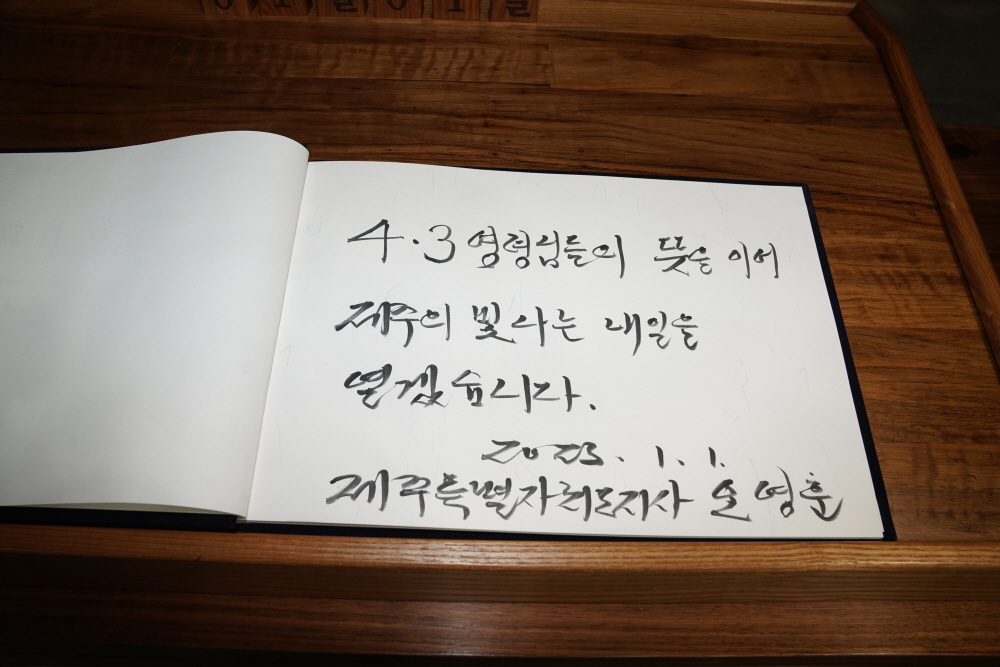 01월01일
4.3 영령님들의 뜻을 이어
제주의 빛나는 내일을
열겠습니다.
2023. 1. 1.
제주특별자치도지사 오영훈